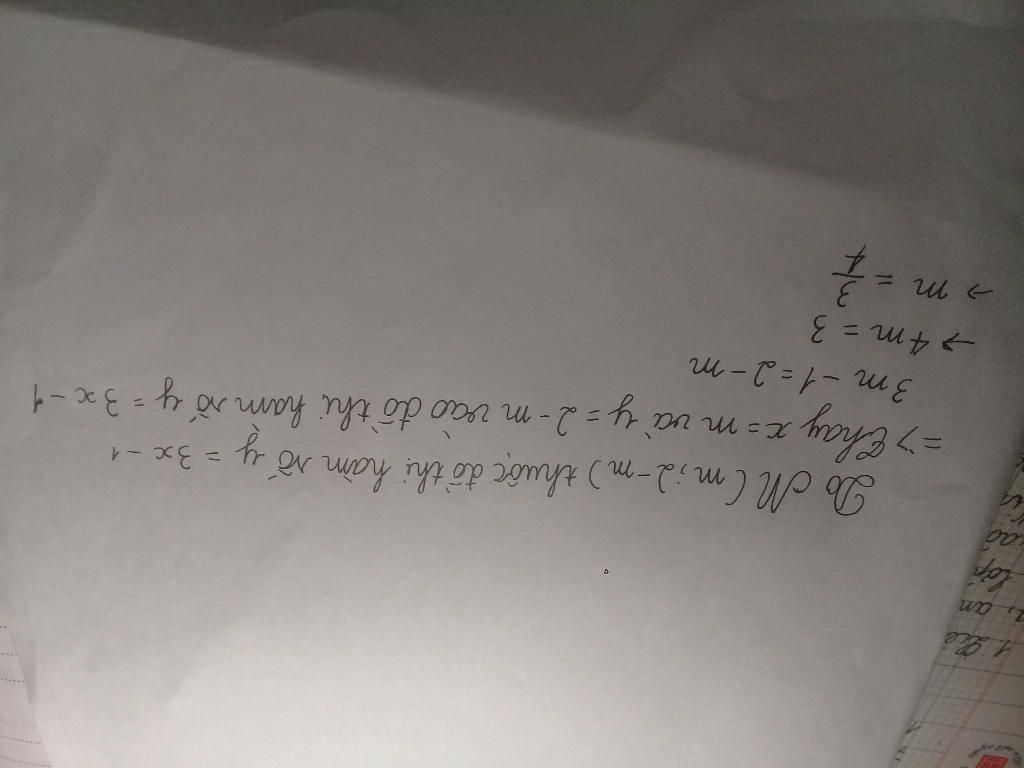 Do M (m; 2-m) thuộc đồ thị hàm số y = 3x - 1
=> Thay x = m và y = 2 - m vào đồ thị hàm số y = 3x - 1
3m - 1 = 2 - m
→ 4m = 3
→ m = 3/4